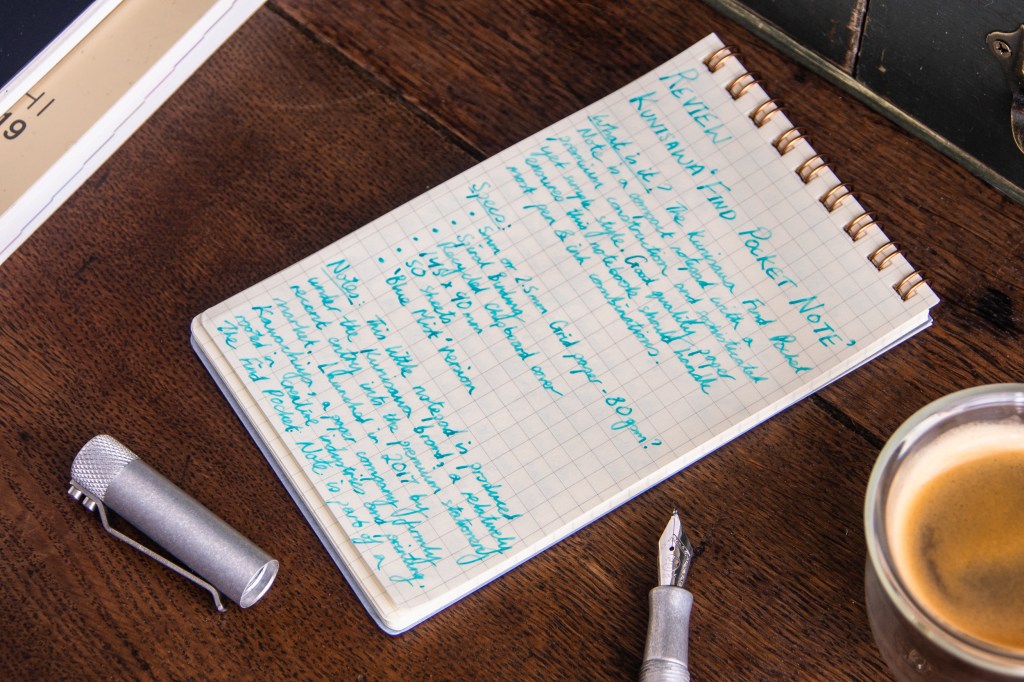 REVIEW
KUNISAWA 'FIND POCKET NOTE'
What is it? The Kunisawa Find Pocket
Note is a compact notepad with a
premium construction and sophisticated
yet simple style. Good quality paper
ensures this notebook should handle
most pen & ink combinations.
Specs:
• 5mm or 2.5mm Grid paper - 80gsm?
• Spiral Binding
• Recycled Cardboard cover
• 148 x 90mm
• 50 sheets
• 'Blue Mist' Version
Notes: This little notepad is produced
under the Kunisawa brand, a relatively
recent entry into the premium stationery
market. Launched in 2017 by family
Kunisawa, a paper company and printing.
rooted in creative industries
The Find Pocket Note is part of a
HI
19